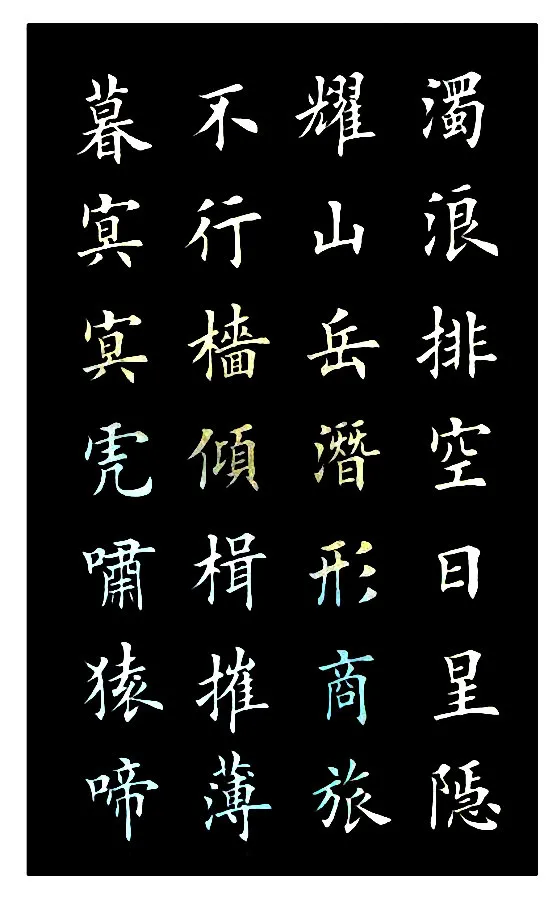 濁浪排空日星隱
耀山岳潛形商旅
不行檣傾楫摧薄
暮冥冥虎嘯猿啼